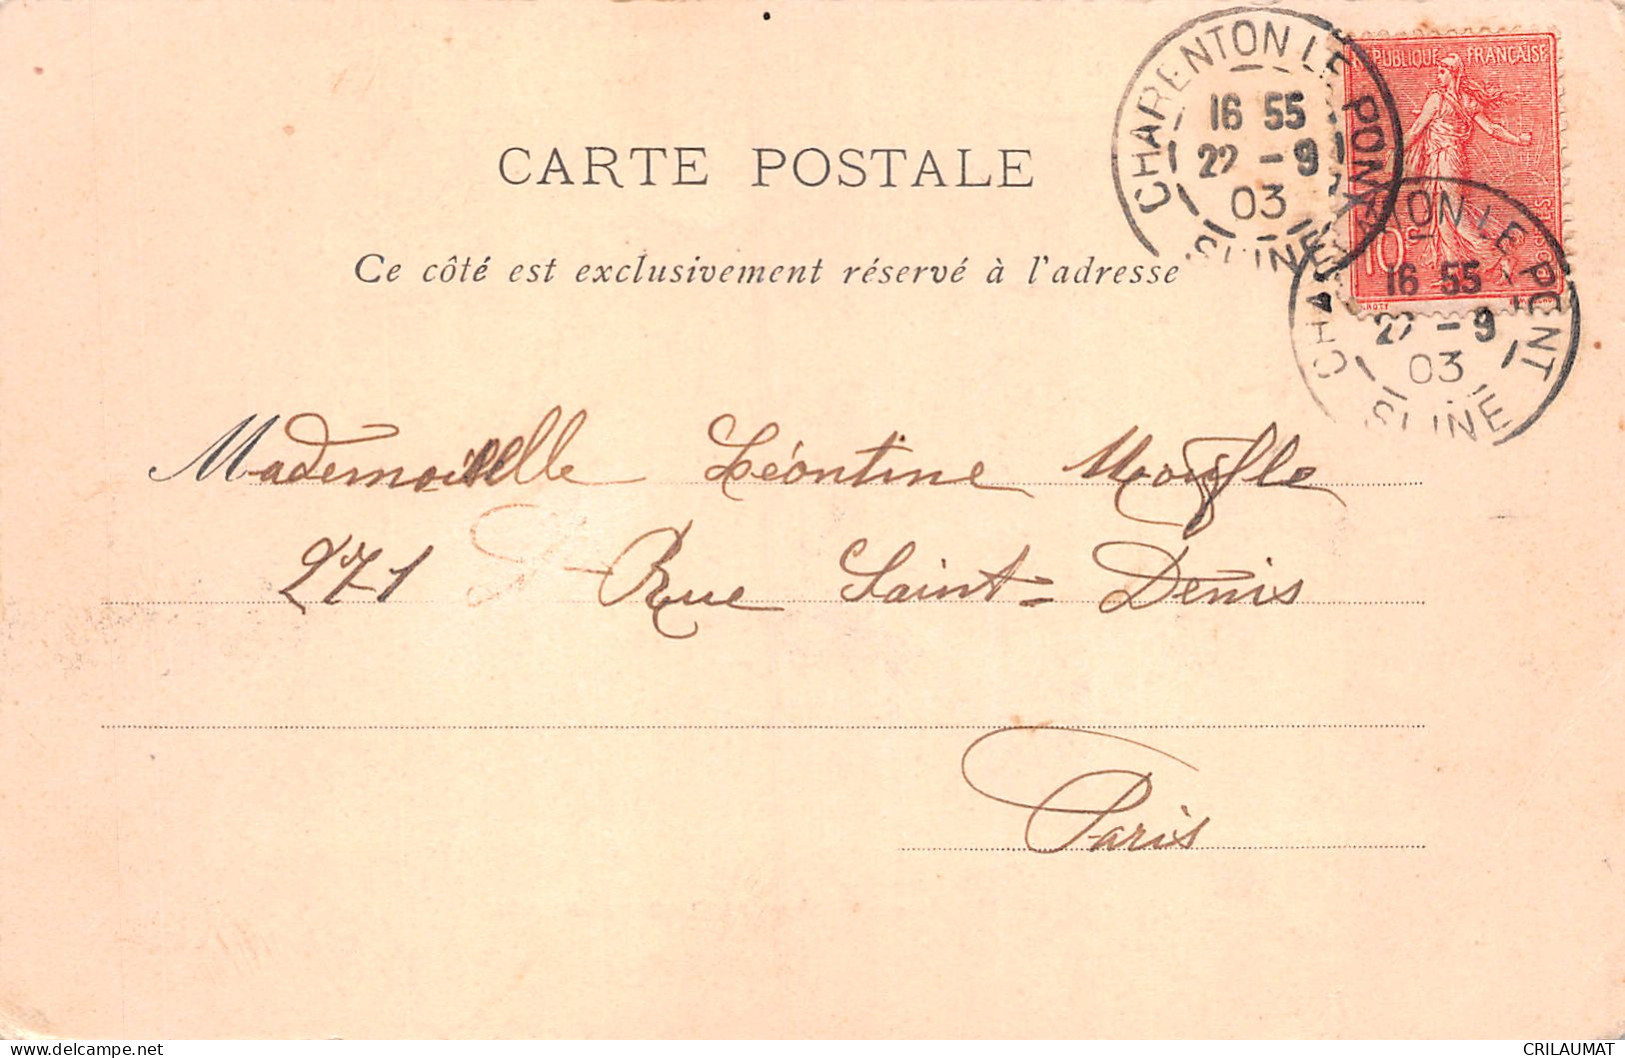 CHARENTON LE PONT
16 55
22 -9
03
SEINE
RÉPUBLIQUE FRANÇAISE
POSTES
10
CHARENTON LE PONT
16 55
22 -9
03
SEINE
CARTE POSTALE
Ce côté est exclusivement réservé à l'adresse
Mademoiselle Léontine
271 Rue Saint-Denis
Paris
CRILAUMAT